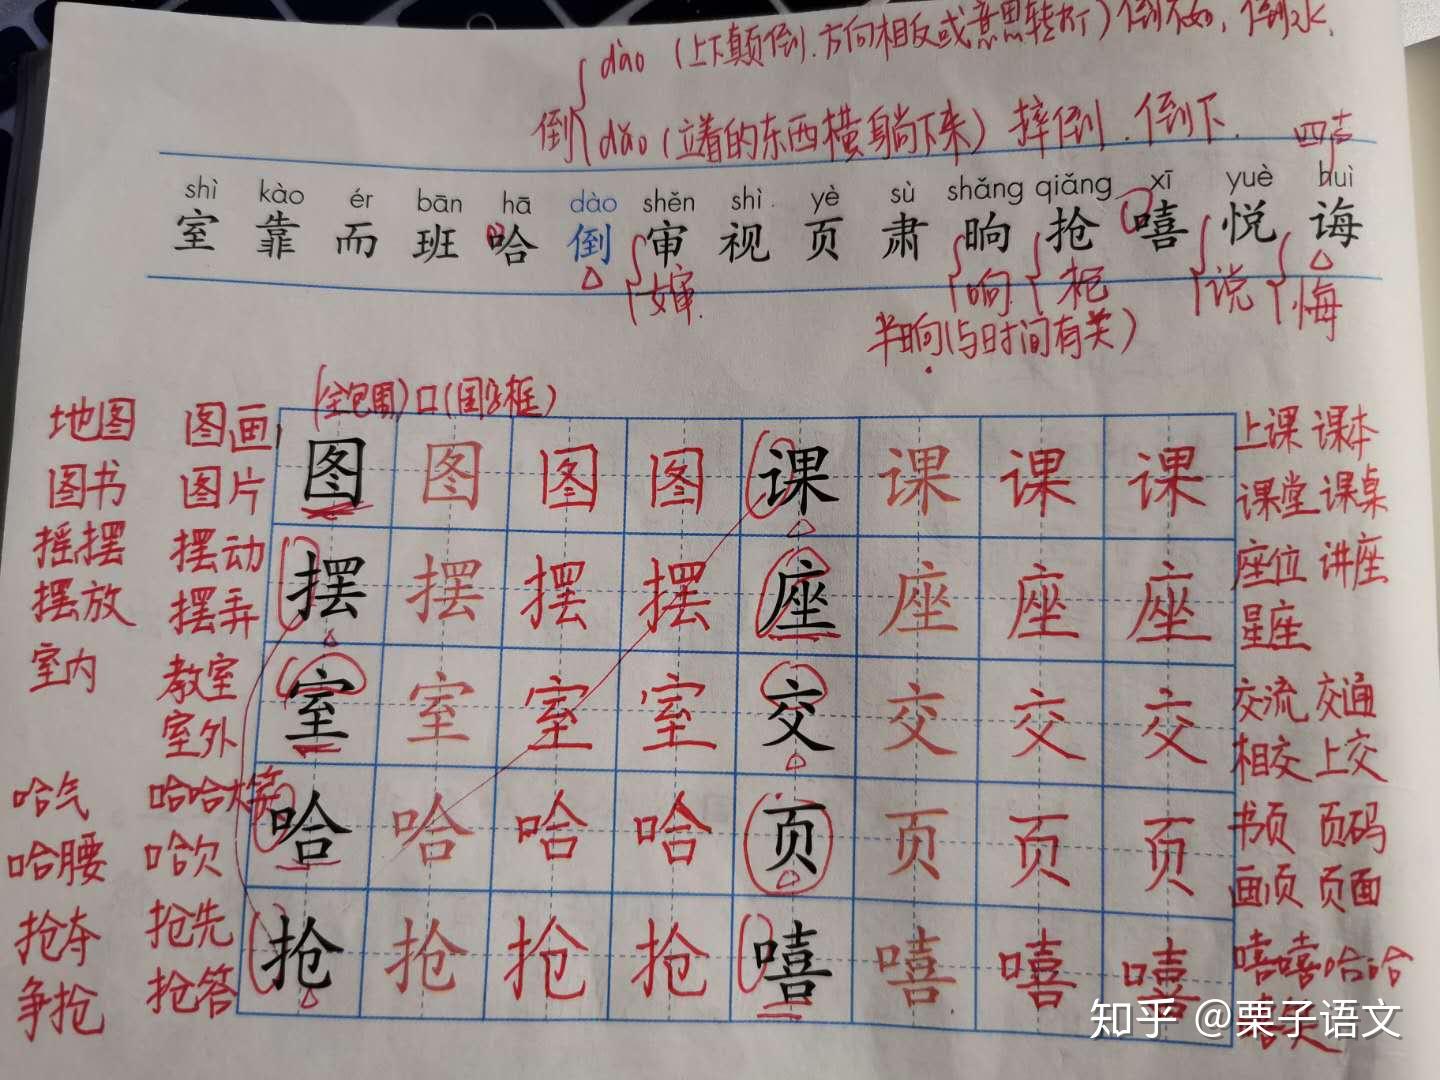 dào（上下颠倒.方向相反或意思转折）倒不如，倒水，
倒
dǎo（立着的东西横躺下来）摔倒．倒下．
四声
shì kào ér bān hā dào shěn shì yè sù shǎng qiǎng xī yuè huì
室 靠 而 班 哈 倒 审 视 页 肃 晌 抢 嘻 悦 诲
婶 响 枪 说 悔
半晌(与时间有关)
(全包围) 口(国字框)
地图 图画 图 图 图 图 课 课 课 课 上课 课本
图书 图片 课堂 课桌
摇摆 摆动 摆 摆 摆 摆 座 座 座 座 座位 讲座
摆放 摆弄 星座
室内 教室 室 室 室 室 交 交 交 交 交流 交通
室外 相交 上交
哈气 哈哈大笑 哈 哈 哈 哈 页 页 页 页 书页 页码
哈腰 哈欠 画页 页面
抢夺 抢先 抢 抢 抢 抢 嘻 嘻 嘻 嘻 嘻嘻哈哈
争抢 抢答
知乎 @栗子语文